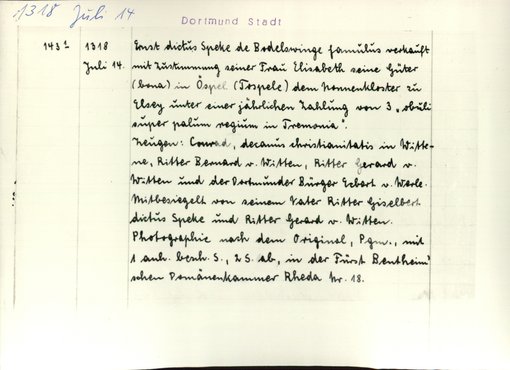 1318 Juli 14
Dortmund Stadt
143¹ 1318 Ernst dictus Speke de Bodelswinge famulus verkauft
Juli 14. mit Zustimmung seiner Frau Elisabeth seine Güter
(bona) in Öspel (Tospele) dem Nonnenkloster zu
Elsey unter einer jährlichen Zahlung von 3 „obuli
super palum regium in Tremonia".
Zeugen: Conrad, decanus christianitatis in Witte-
ne, Ritter Bernard v. Witten, Ritter Gerard v.
Witten und der Dortmunder Bürger Ecbert v. Werle.
Mitbesiegelt von seinem Vater Ritter Giselbert
dictus Speke und Ritter Gerard v. Witten.
Photographie nach dem Original, Pgm., mit
1 anh. besch. S., 2 S. ab, in der Fürst Bentheim'
schen Domänenkammer Rheda Nr. 18.